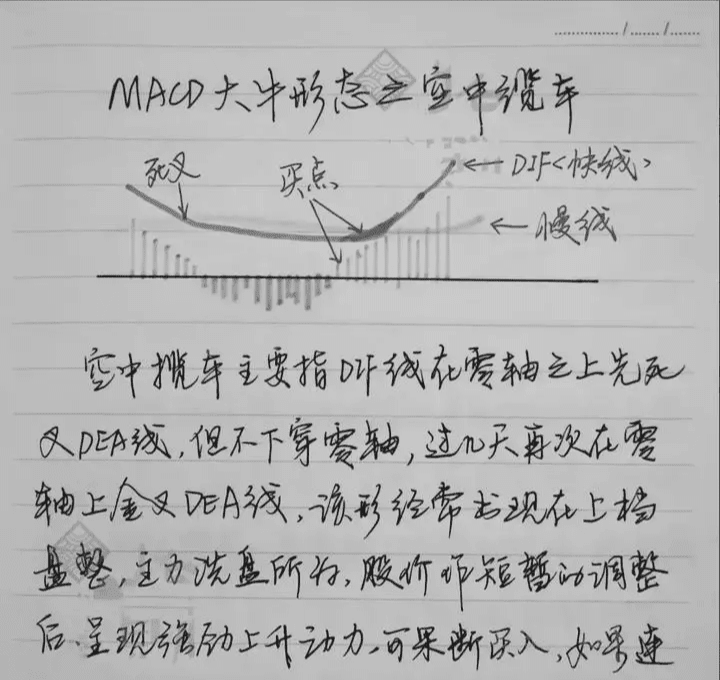 MACD大牛形态之空中缆车
死叉
买点
←DIF<快线>
←慢线
空中揽车主要指DIF线在零轴之上先死
叉DEA线,但不下穿零轴,过几天再次在零
轴上金叉DEA线,该形经常出现在上档
盘整,主力洗盘所为,股价作短暂的调整
后、呈现强劲上升动力,可果断买入,如果连